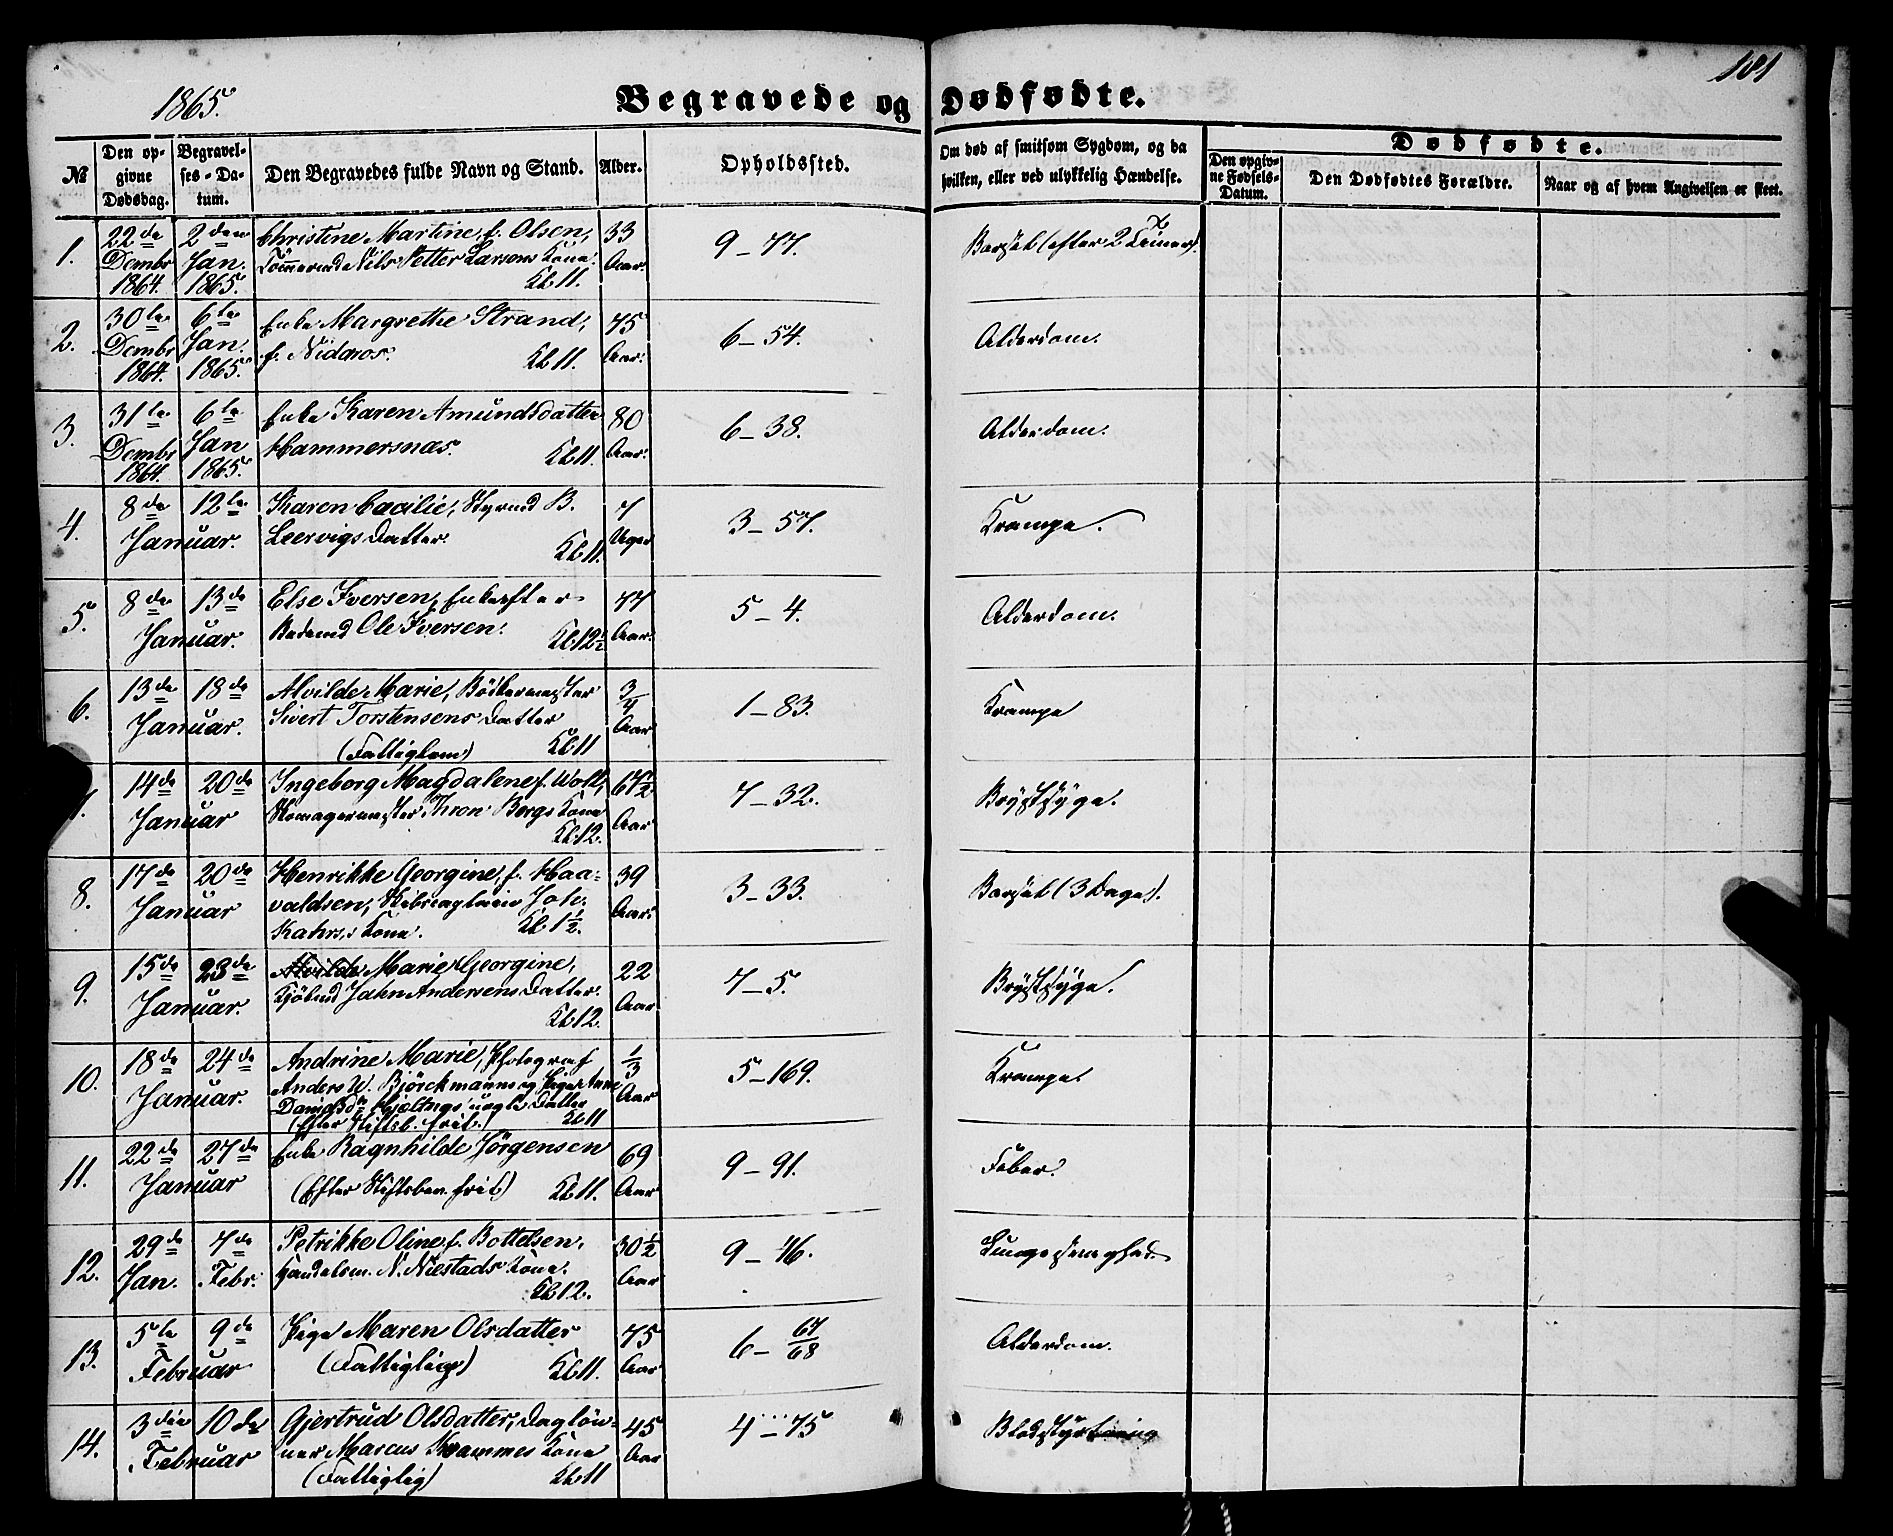 181
1865.
Begravede og Dødfødte.
№
Den opgivne Dødsdag.
Begravelses-Datum.
Den Begravedes fulde Navn og Stand.
Alder.
Opholdssted.
Om død af smitsom Sygdom, og da hvilken, eller ved ulykkelig Hændelse.
Dødfødte.
Den opgivne Fødsels-Datum.
Den Dødfødtes Forældre.
Naar og af hvem Angivelsen er skeet.
1. 22de Dembr 1864. 2den Jan. 1865. Christine Martine, f. Olsen, 33 Aar. 9-77. Barsel (efter 2
Tømermd Nils Petter Larsens Kone.
Kl. 11.
2. 30te Dembr 1864. 6te Jan. 1865. Enke Margrethe Strand, 75 Aar. 6-54. Alderdom.
f. Nidaros. Kl. 11.
3. 31te Dembr 1864. 6te Jan 1865. Enke Karen Amundsdatter 80 Aar. 6-38. Alderdom.
Hammersnæs. Kl. 11.
4. 8de 12te Januar. Karen Cæcilie, Styrmd B. 7 Uger 3-57. Krampe.
Leervigs Datter. Kl. 11.
5. 8de 13de Januar. Else Iversen, Enke efter 77 Aar. 5-4. Alderdom.
Ole Iversen. Kl. 12½
6. 13de 18de Januar. Alvilde Marie, Bödkermester 3/4 Aar 1-83. Krampe
Sivert Torstensens Datter
(Fattiglem) Kl. 11
7. 14de 20de Januar Ingeborg Magdalene f. Wolf, 67½ Aar 7-32. Brystsyge.
Skomagermester Thron Bergs Kone
Kl. 12.
8. 17de 20de Januar Henrikke Georgine, f. Haa- 39 Aar. 3-33. Barsel (3 Dage).
valdsen, Joh.
Kahrs's Kone. Kl. 1½.
9. 15de 23de Januar. Alvilde Marie Georgine, 22 Aar 7-5. Brystsyge.
Kjöbmd Jahn Andersens Datter.
Kl. 12.
10. 18de 24de Januar. Andrine Marie, Photograf 1/3 Aar 5-169. Krampe.
Anders W. Björckmanns og Pige Anne
uægte Datter
(Efter Stiftsb. frit.) Kl. 11
11. 22de 27de Januar Enke Ragnhilde Jörgensen 69 Aar 9-91. Feber.
(Efter Stiftsben. frit) Kl. 11.
12. 29de Jan. 7de Febr. Petrikke Oline f. Bottelsen, 30½ Aar 9-16.
Handelsm. N. Niestads Kone.
Kl. 12.
13. 5te 9de Februar Pige Maren Olsdatter 75 Aar 6-67/68 Alderdom.
(Fattiglig) Kl. 11.
14. 3die 10de Februar Gjertrud Olsdatter, Daglön- 45 Aar 4-75 Blodstyrtning
ner Marcus Kvammes Kone
(Fattiglig) Kl. 11